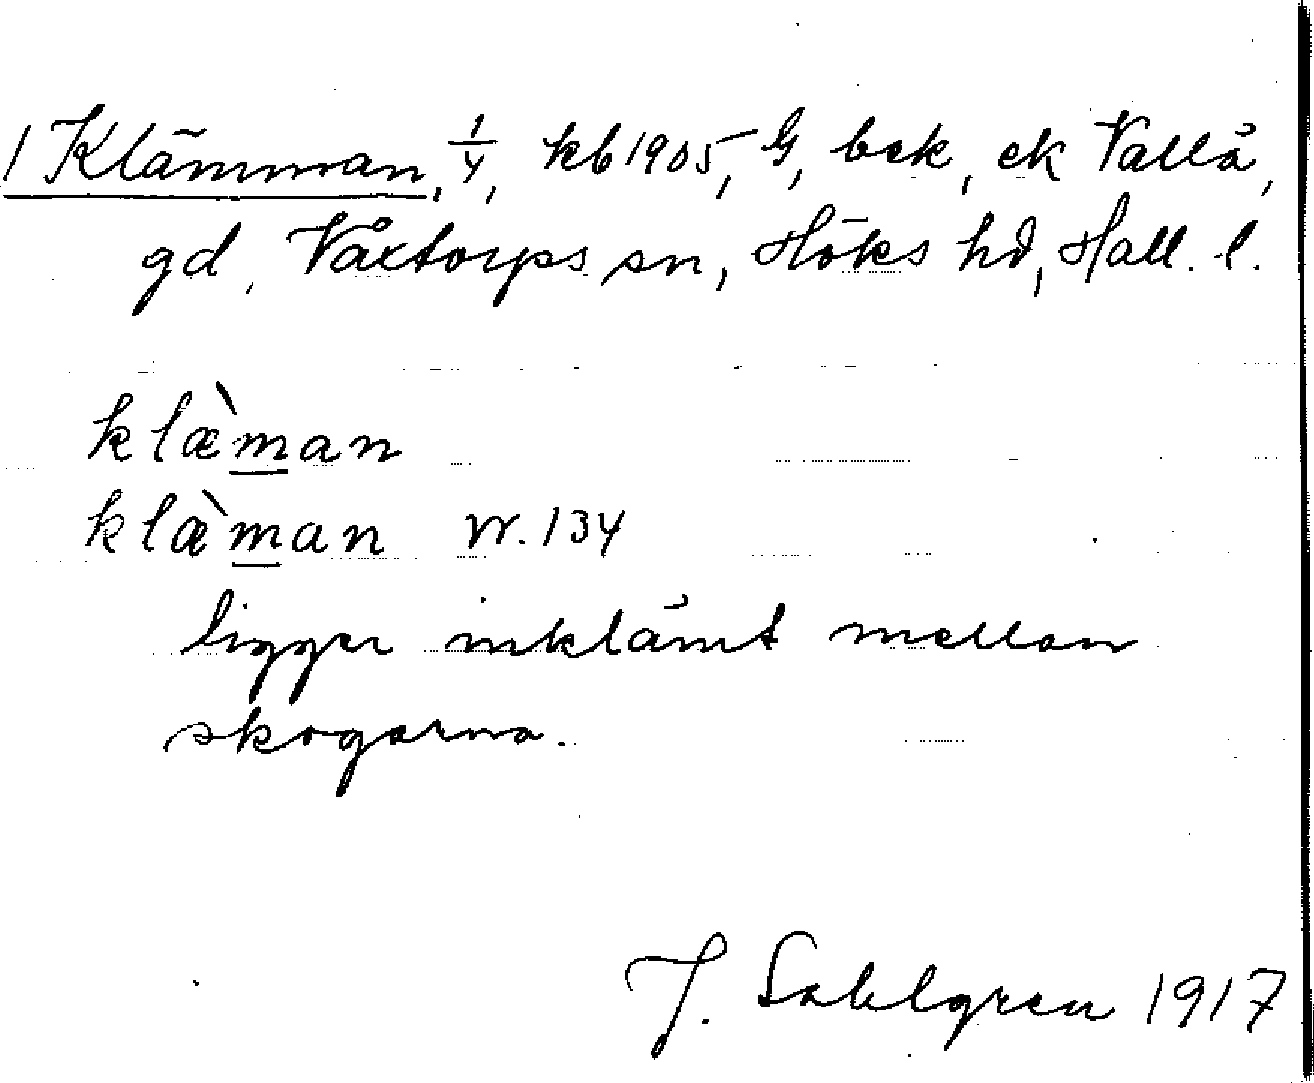 1 Klämman, 1/4, kb 1905, G, bek, ek Vallå,
gd, Våxtorps sn, Höks hd, Hall. l.
klæ̀man
klæ̀man W. 134
ligger inklämt mellan
skogarna.
J. Sahlgren 1917